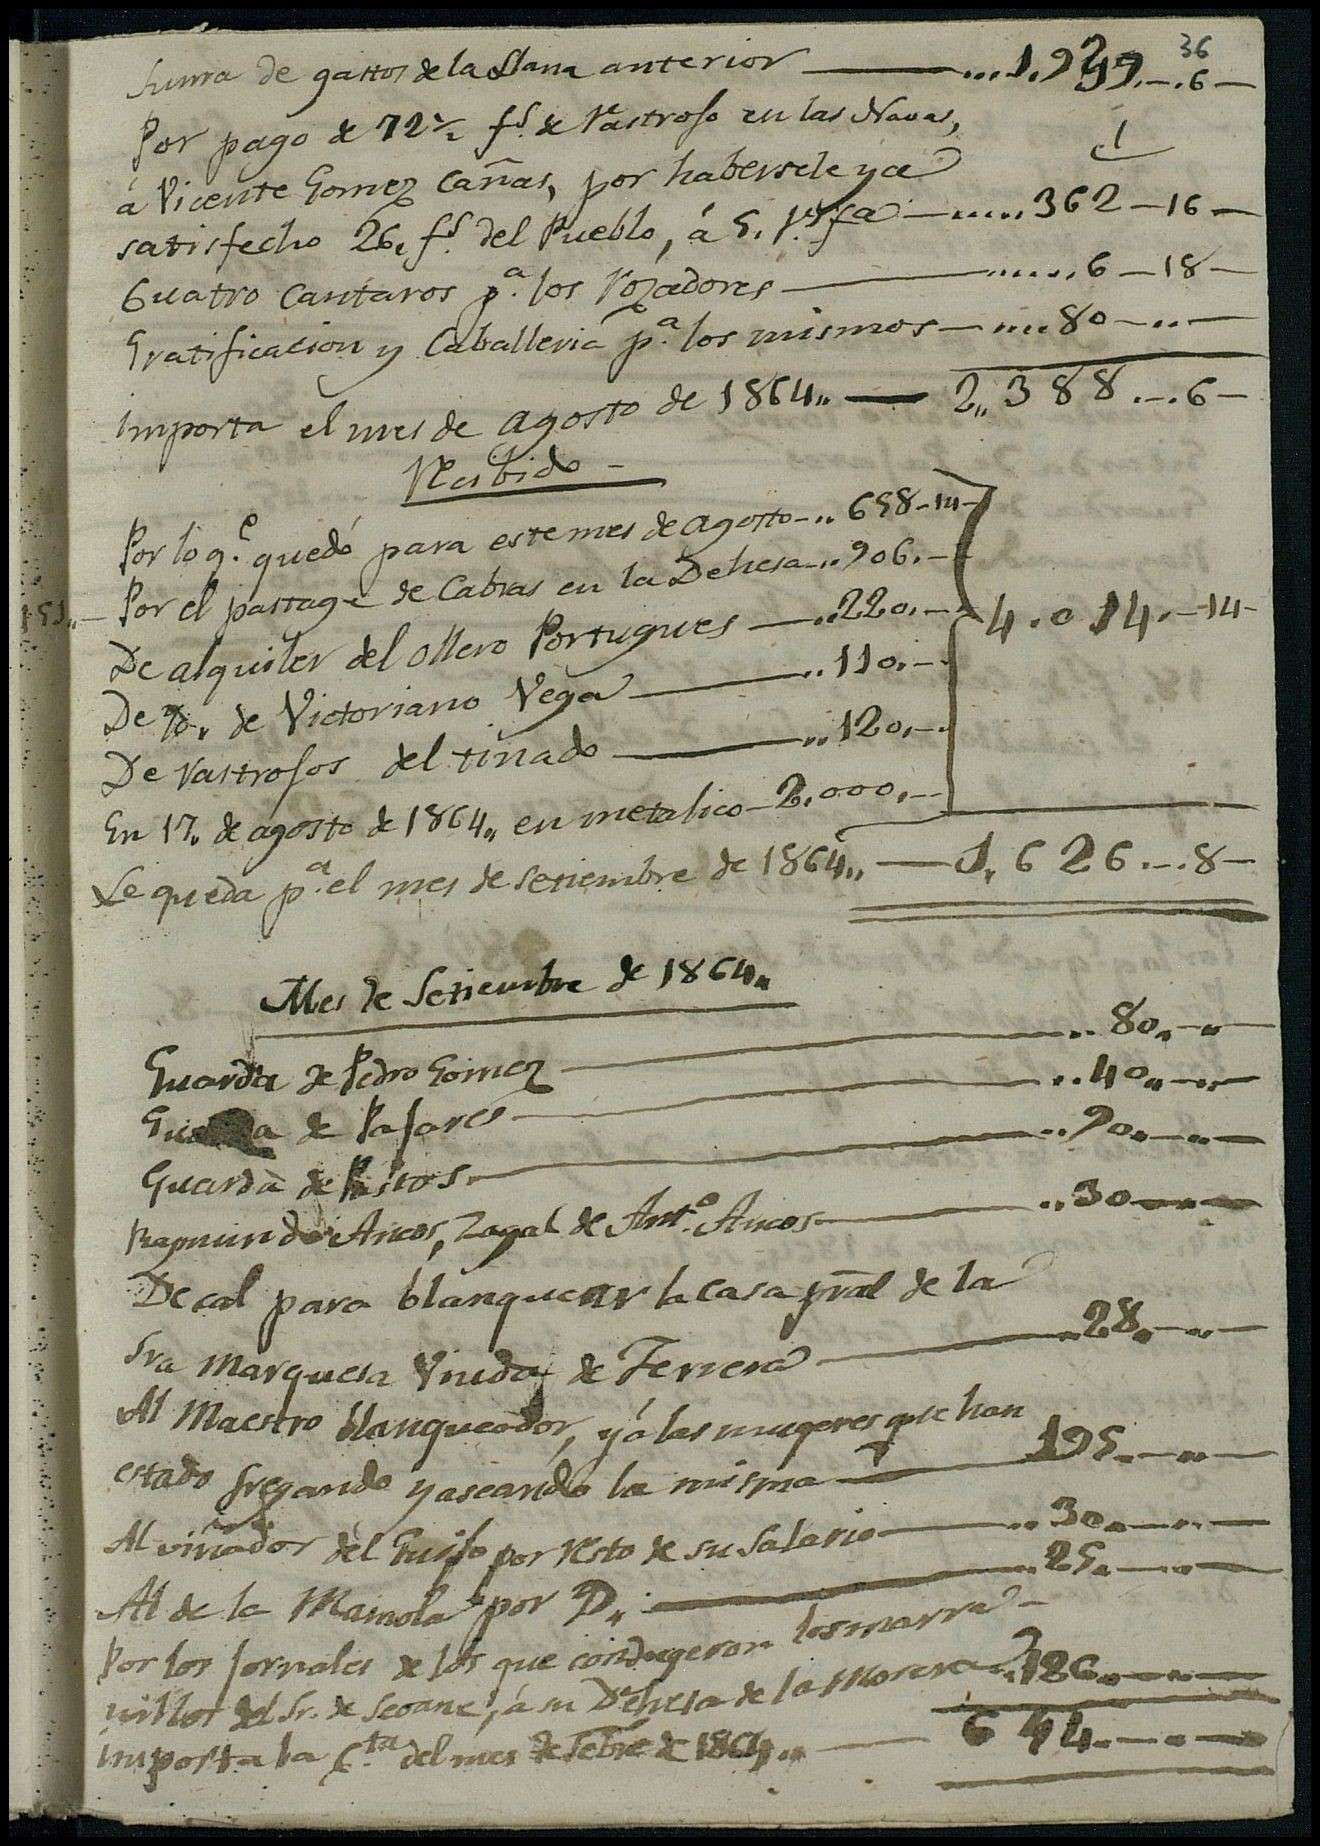 36
Suma de gastos de la llana anterior ——— ...1.939.—.6—
Por pago de 72½ fs. de Rastrojo en las Navas,
á Vicente Gomez Cañas, por habersele ya
satisfecho 26. fs. del Pueblo, á 5. rs. fa —.....362—16—
Cuatro Cantaros pa. los Rozadores ———......6—18—
Gratificacion y Caballeria pa. los mismos—....80—..—
importa el mes de agosto de 1864,, —— 2,,388.—.6—
Recibido—
Por lo qe. quedó para este mes de agosto—..658—14—
Por el pastage de Cabras en la Dehesa—..906.—
4.014.—14—
De alquiler del ollero Portugues —..220.—
De Yd. de Victoriano Vega ———..110.—
De rastrojos del tinado ———..120.—
En 17,, de agosto de 1864,, en metalico—2.000.—
Le queda pa. el mes de Setiembre de 1864,, —1,,626.—.8—
Mes de Setiembre de 1864,,
Guarda de Pedro Gomez ———..80,,—,,—
Guarda de Pajares ———..40,,—,,—
Guarda de Pastos ———..90,,—,,—
Raymundo Ancos, Zagal de Anto. Ancos———..30—,,—
De cal para blanquear la casa pral de la
Sra Marquesa Viuda de Ferrera ———..28,,—,,—
Al Maestro blanqueador, y á las mugeres que han
estado fregando y aseando la misma ———195.—,,—
Al viñador del Guijo por resto de su Salario———..30,,—,,—
Al de la Mamola por YD,, ———..25.—,,—
Por los Jornales de los que condugeron los marra—
nillos del Sr. de Seoane, á su Dehesa de la Morera—.126,,—,,—
importa la Cta. del mes de Setbre de 1864,, —— 644.—,,—